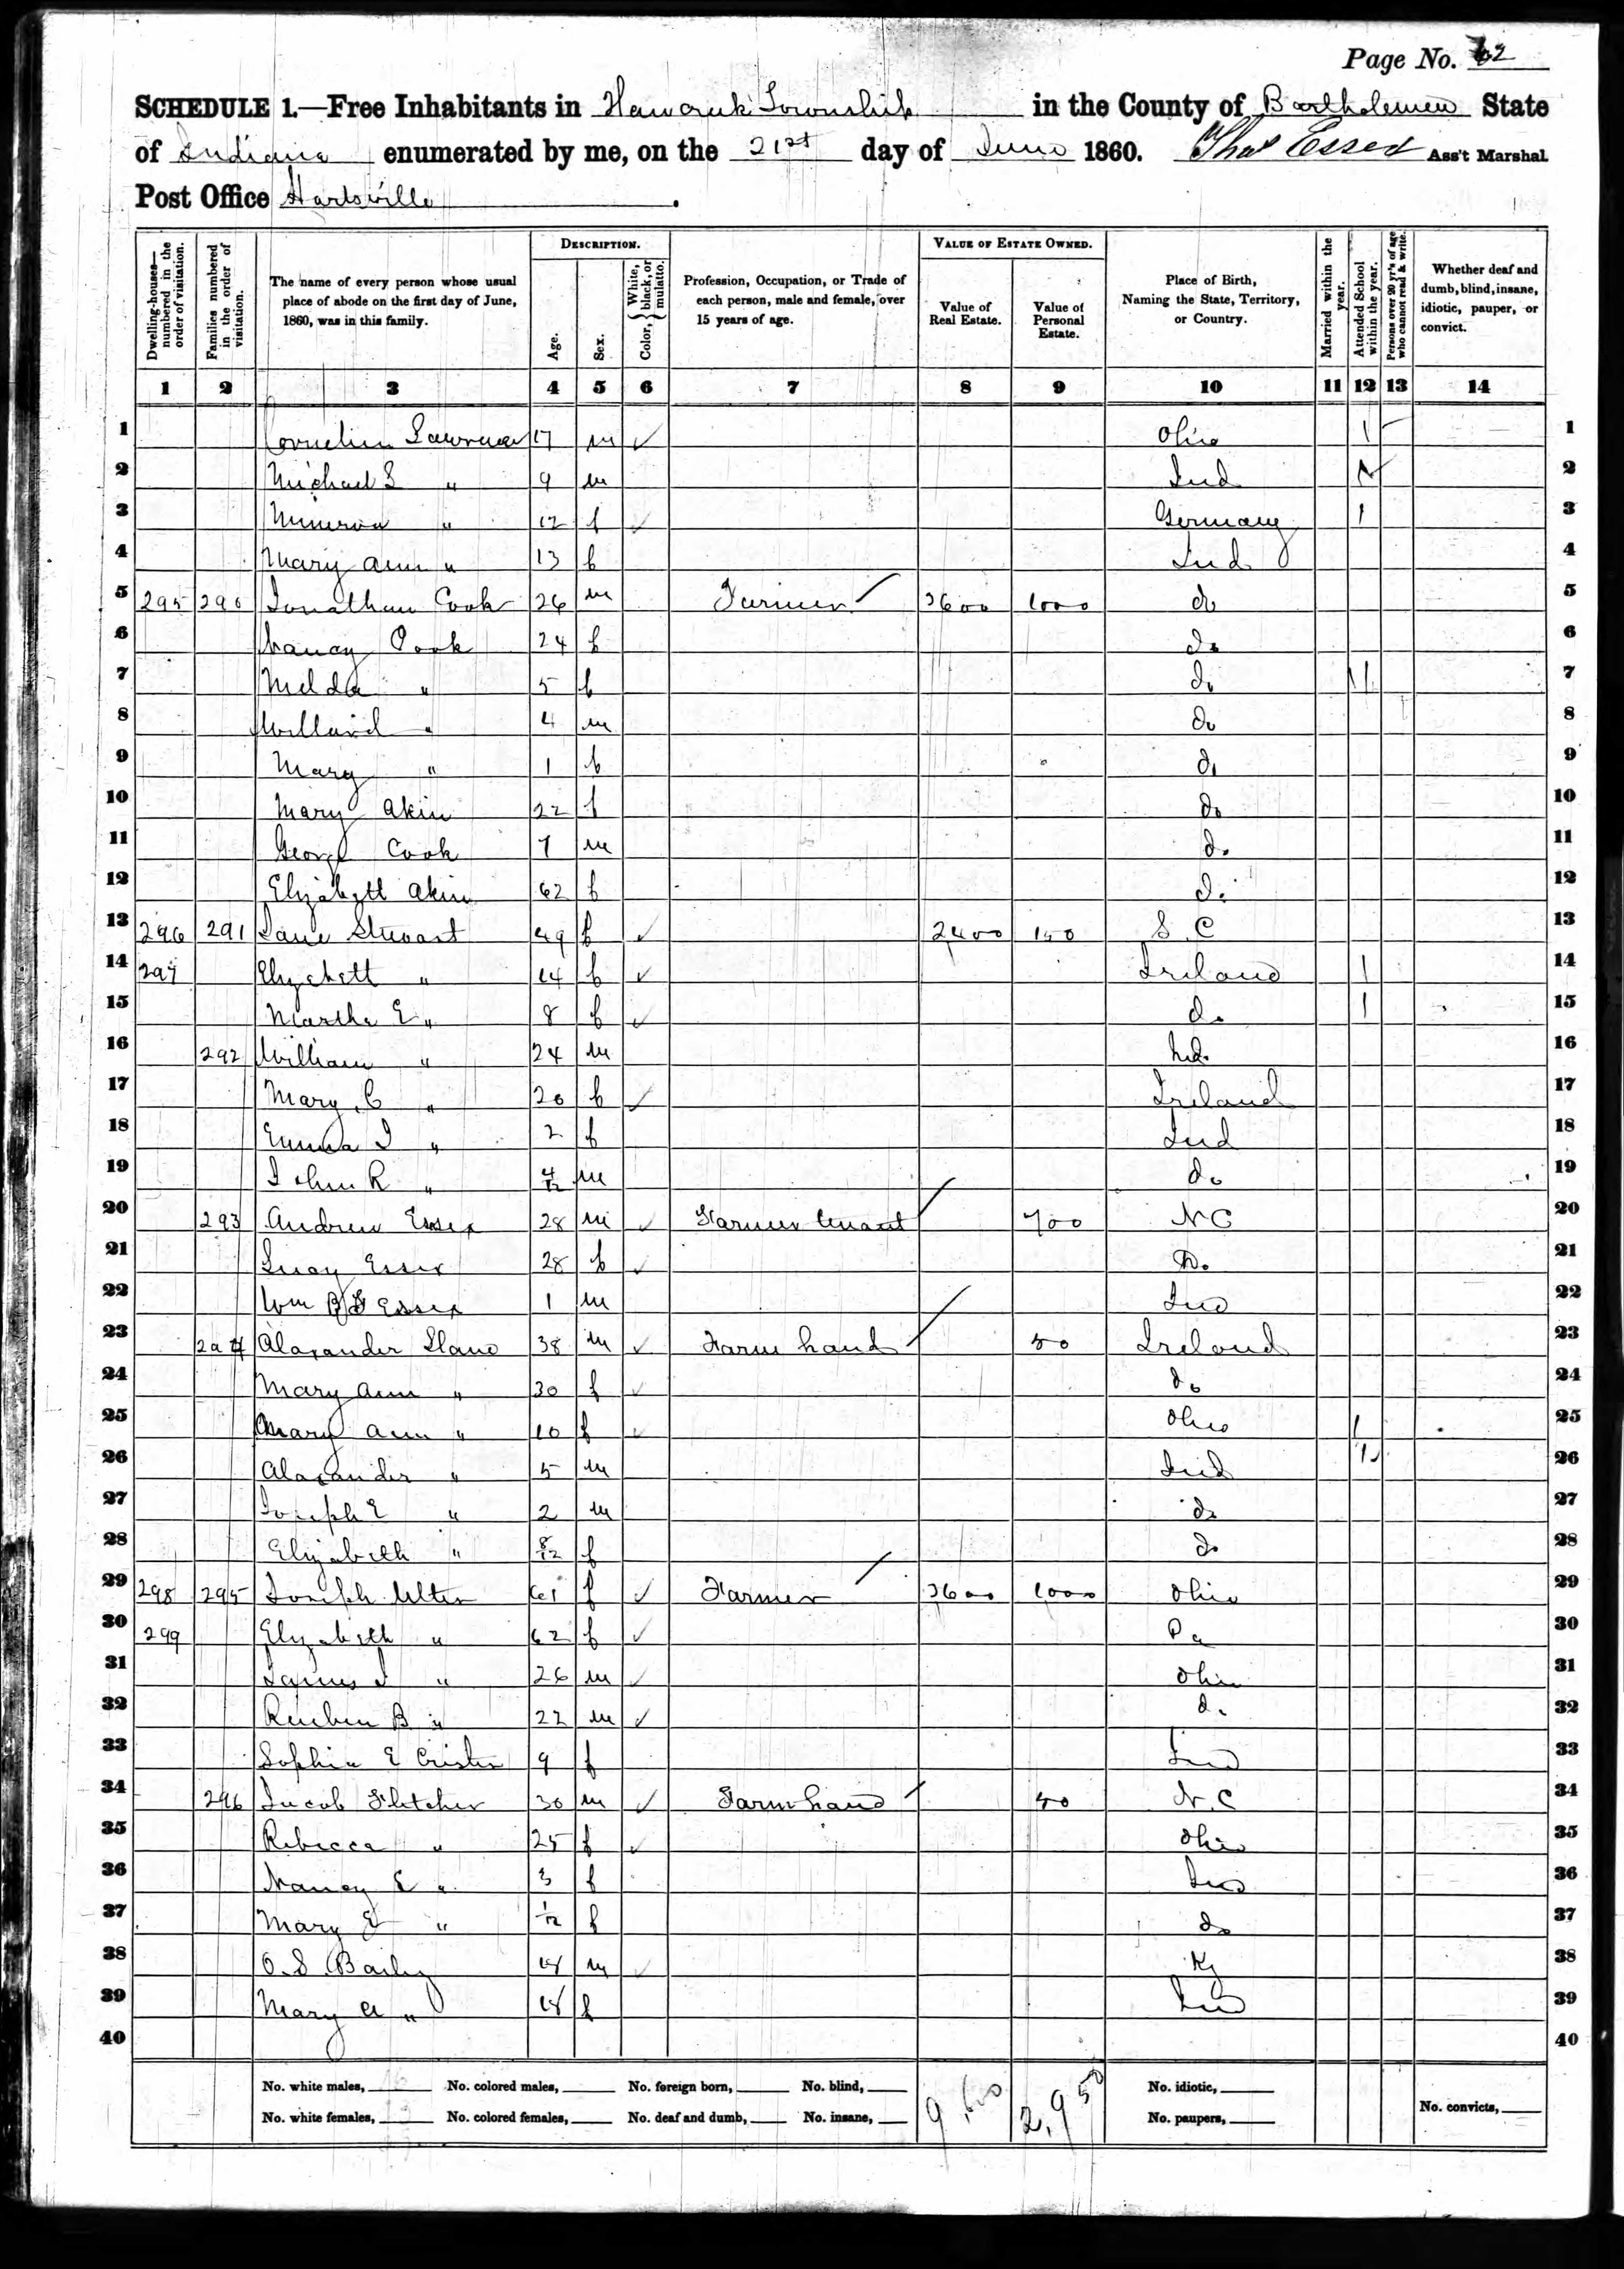 Page No. 62
SCHEDULE 1.—Free Inhabitants in Hawcreek Township in the County of Bartholomew State
of Indiana enumerated by me, on the 21st day of June 1860. Thos Essex Ass't Marshal
Post Office Hartsville.
Dwelling-houses—numbered in the order of visitation.
Families numbered in the order of visitation.
The name of every person whose usual place of abode on the first day of June, 1860, was in this family.
DESCRIPTION.
Age.
Sex.
Color, {White, black, or mulatto.
Profession, Occupation, or Trade of each person, male and female, over 15 years of age.
VALUE OF ESTATE OWNED.
Value of Real Estate.
Value of Personal Estate.
Place of Birth, Naming the State, Territory, or Country.
Married within the year.
Attended School within the year.
Persons over 20 yr's of age who cannot read & write.
Whether deaf and dumb, blind, insane, idiotic, pauper, or convict.
1 2 3 4 5 6 7 8 9 10 11 12 13 14
1 17 m ✓ Ohio 1 1
2 Michael S " 9 m Ind 2
3 Minerva " 12 f ✓ Germany 1 3
4 Mary Ann " 13 f Ind 4
5 295 290 Jonathan Cook 26 m Farmer 3600 1000 do 5
6 Nancy Cook 24 f do 6
7 Melda " 5 f do 7
8 Willard " 4 m do 8
9 Mary " 1 f do 9
10 Mary Akin 22 f do 10
11 George Cook 7 m do 11
12 Elizabett Akin 62 f do 12
13 296 291 Jane Stewart 49 f ✓ 2400 150 S.C 13
14 297 " 14 f ✓ Ireland 1 14
15 Martha E " 8 f ✓ do 1 15
16 292 William " 24 m 16
17 Mary C " 20 f ✓ Ireland 17
18 Emma J " 2 f Ind 18
19 John R " 4/12 m do 19
20 293 Andrew Essex 28 m ✓ Farmer tenant 700 NC 20
21 Essex 28 f ✓ Do 21
22 Wm Essex 1 m Ind 22
23 294 Alaxander 38 m ✓ Farm hand 50 Ireland 23
24 Mary Ann " 30 f ✓ do 24
25 Mary Ann " 10 f ✓ Ohio 1 25
26 Alaxander " 5 m Ind 1 26
27 Joseph E " 2 m do 27
28 Elizabeth " 8/12 f do 28
29 298 295 Joseph Alter 61 f ✓ Farmer 3600 1000 Ohio 29
30 299 Elizabeth " 62 f ✓ Pa 30
31 James J " 26 m ✓ Ohio 31
32 Reuben B " 22 m ✓ do 32
33 Sophia E 9 f Ind 33
34 296 Jacob Fletcher 30 m ✓ Farm hand 50 N.C 34
35 Rebecca " 25 f ✓ Ohio 35
36 Nancy E " 3 f Ind 36
37 Mary E " 1/12 f do 37
38 O.S. Baily m ✓ Ky 38
39 Mary A " 18 f Ind 39
40 40
No. white males, No. colored males, No. foreign born, No. blind, 9,600 2,950 No. idiotic,
No. white females, No. colored females, No. deaf and dumb, No. insane, No. paupers, No. convicts,